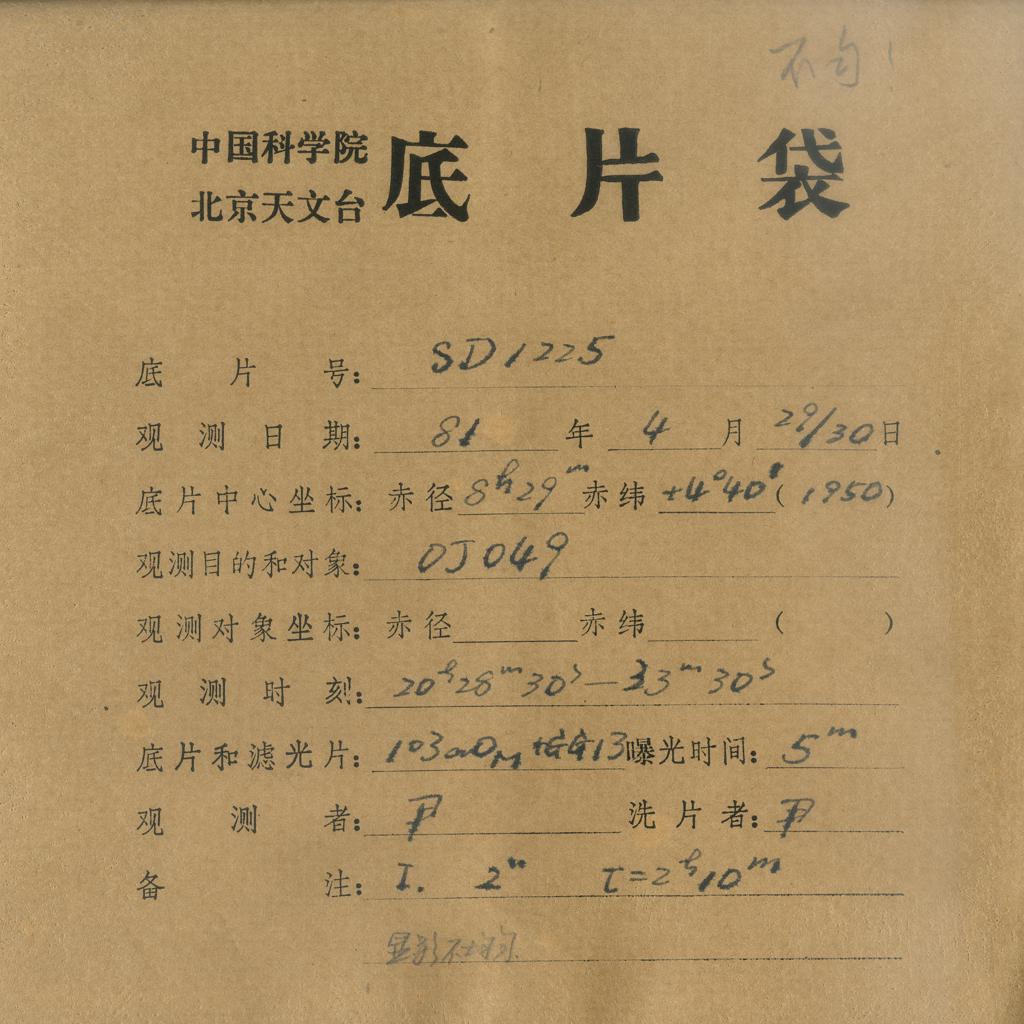 不匀!
中国科学院
北京天文台
底片袋
底片号: SD1225
观测日期: 81年4月29/30日
底片中心坐标: 赤径 8ʰ29ᵐ 赤纬 +4°40′ (1950)
观测目的和对象: OJ049
观测对象坐标: 赤径 赤纬 ( )
观测时刻: 20ʰ28ᵐ30ˢ—33ᵐ30ˢ
底片和滤光片: 103aO M+GG13 曝光时间: 5ᵐ
观测者: 洗片者:
备注: I. 2" τ=2ʰ10ᵐ
显影不均.